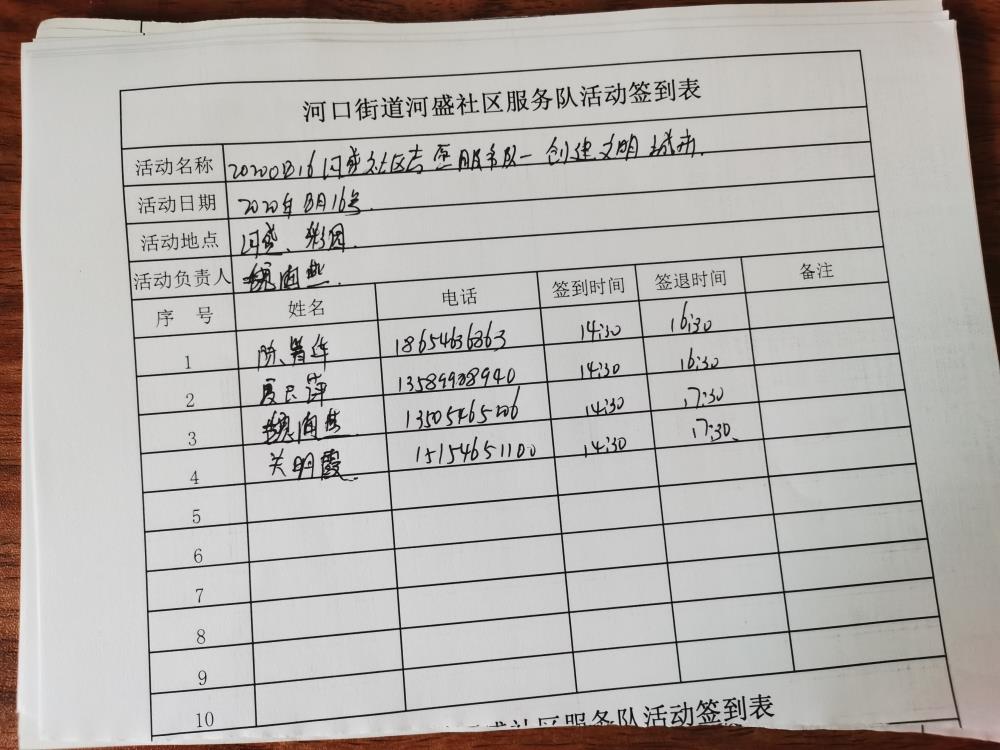 河口街道河盛社区服务队活动签到表
活动名称 20200816河盛社区志愿服务队一创建文明城市.
活动日期 2020年8月16号.
活动地点 河盛、彩园.
活动负责人 魏海燕.
序 号 姓名 电话 签到时间 签退时间 备注
1 陈 华 18654636363 14:30 16:30
2 夏 萍 13589938940 14:30 16:30
3 魏海燕 13505465206 14:30 17:30
4 关明霞. 15154651100 14:30 17:30
5
6
7
8
9
10
盛社区服务队活动签到表